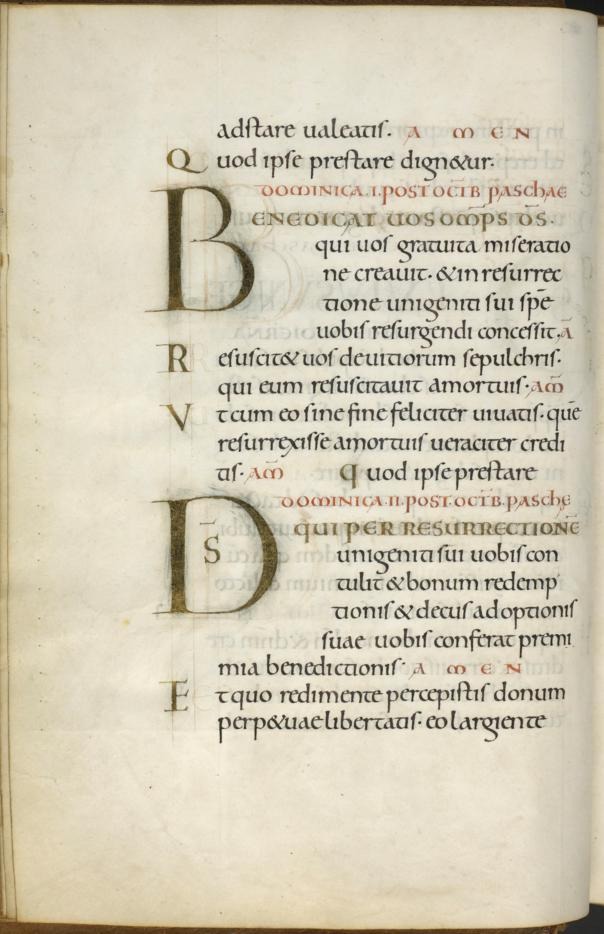 adstare ualeatis. A M E N
Quod ipse prestare dign&ur.
DOMINICA.I.POST OCTB PASCHAE
BENEDICAT UOS OMPS DS.
qui uos gratuita miseratio
ne creauit. & in resurrec
tione unigeniti sui spē
uobis resurgendi concessit. Ā
Resuscit& uos de uitiorum sepulchris.
qui eum resuscitauit amortuis. AM̄
Vt cum eo sine fine feliciter uiuatis. quē
resurrexisse amortuis ueraciter credi
tis. AM̄ Quod ipse prestare
DOMINICA.II.POST.OCTB.PASCHĘ
DS̄ QUI PER RESURRECTIONĒ
unigeniti sui uobis con
tulit & bonum redemp
tionis & decus adoptionis
suae uobis conferat premi
mia benedictionis. A M E N
Et quo redimente percepistis donum
perp&uae libertatis. eo largiente